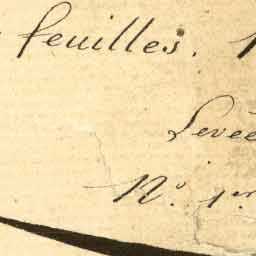 feuilles.
Levée
N.º 1er